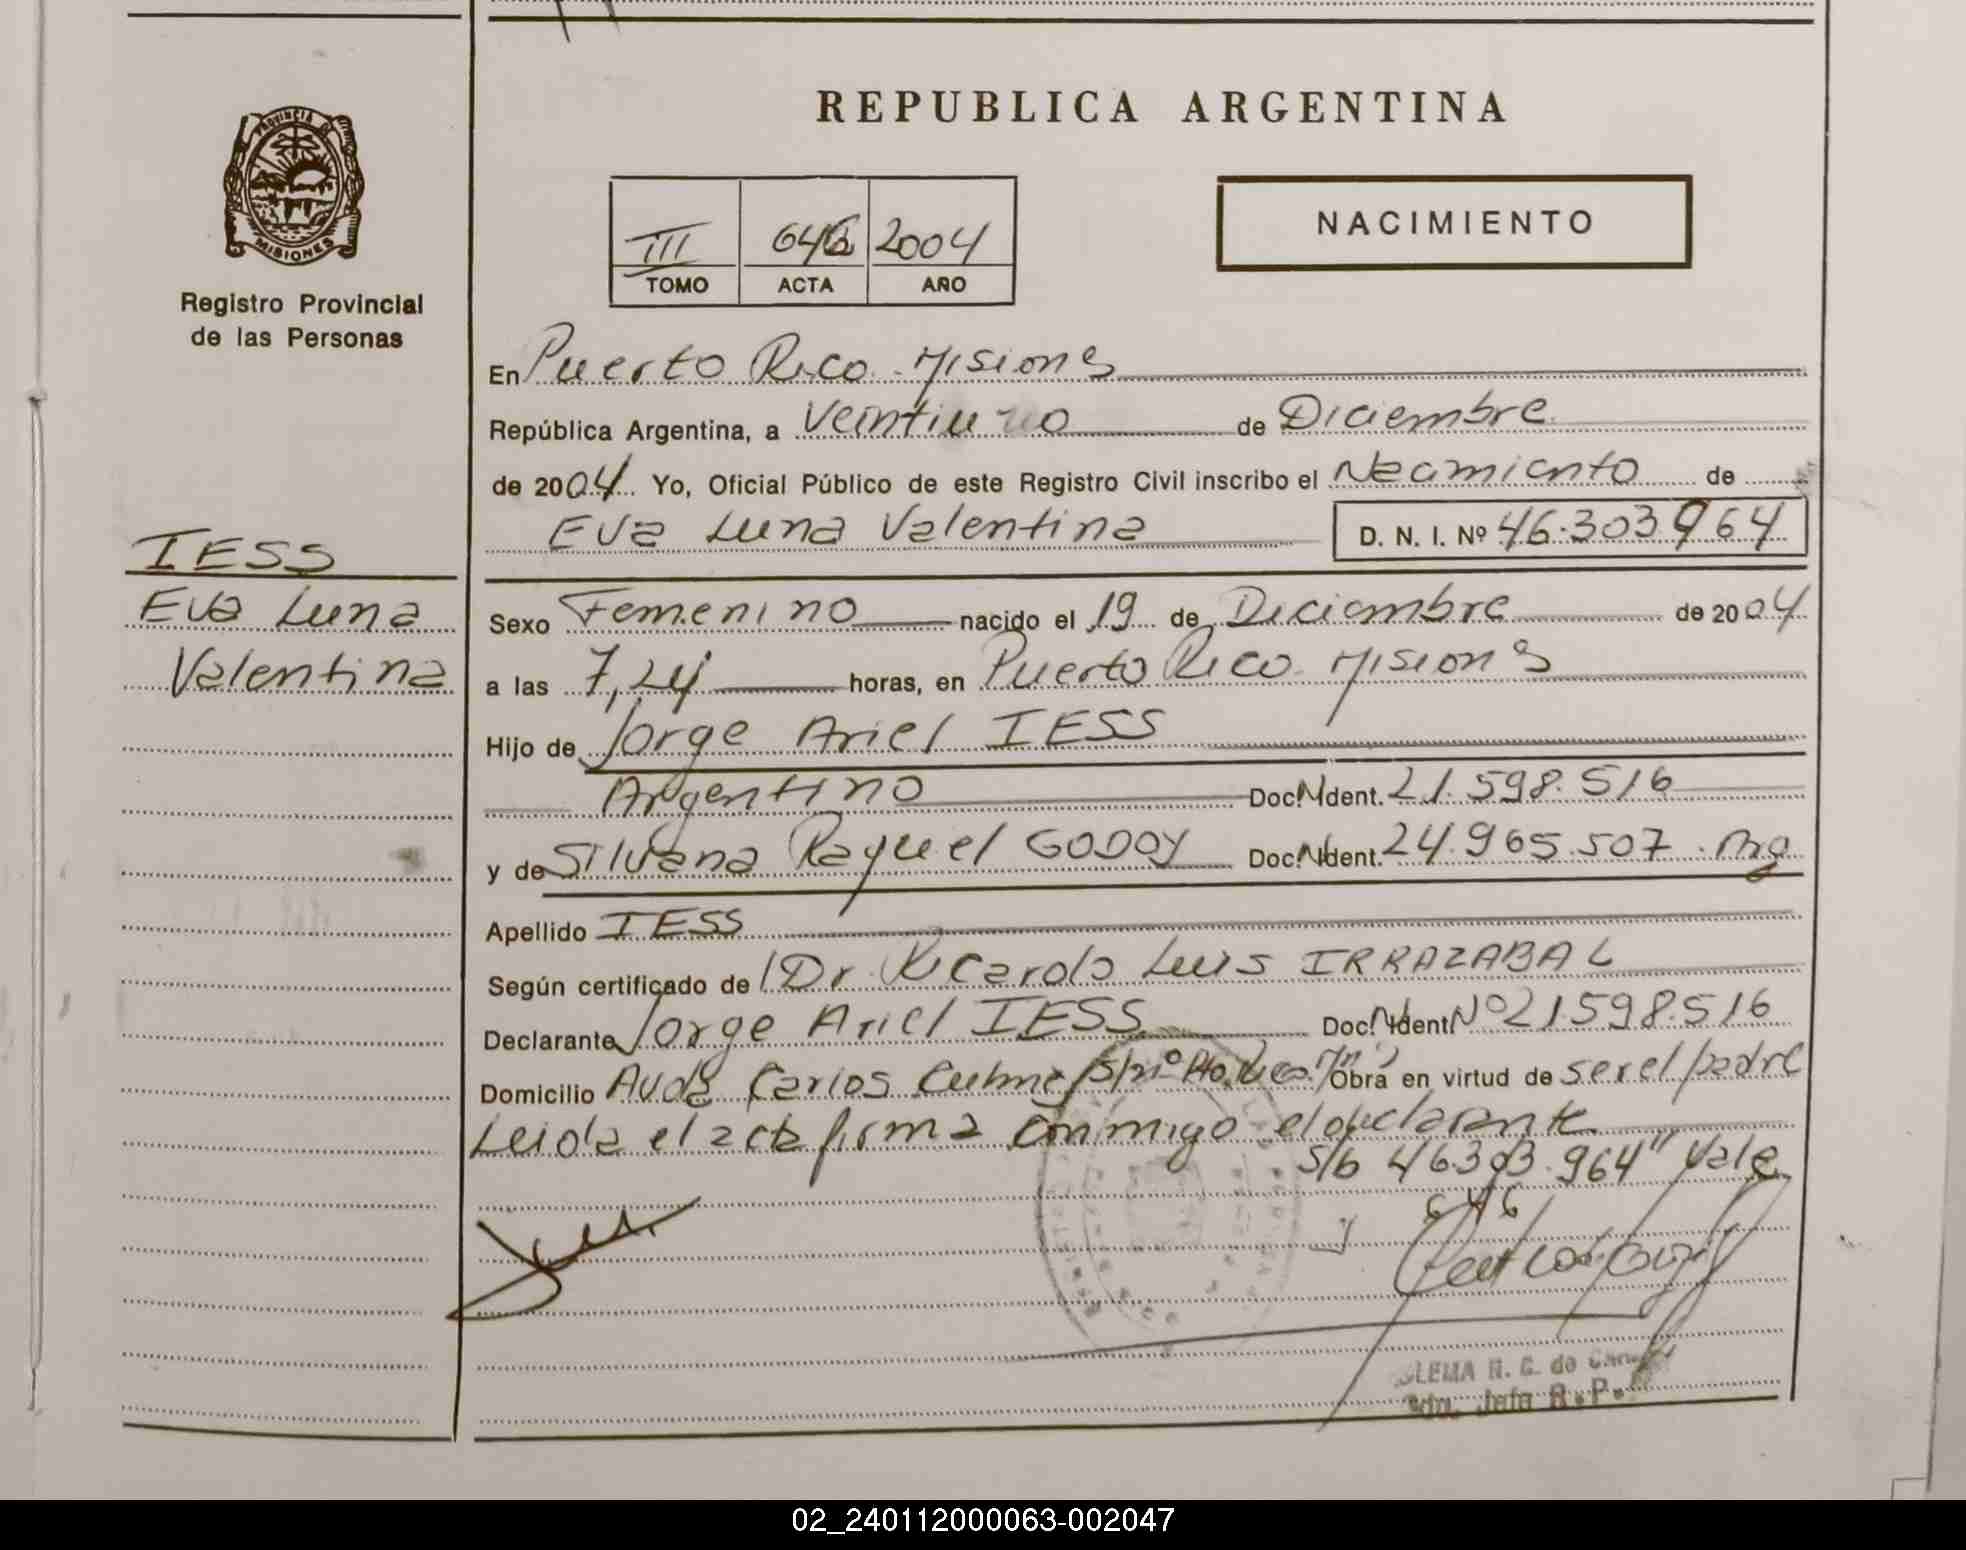 REPUBLICA ARGENTINA
PROVINCIA DE
MISIONES
Registro Provincial
de las Personas
III 646 2004
TOMO ACTA AÑO
NACIMIENTO
En Puerto Rico. Misiones
República Argentina, a Veintiuno de Diciembre
de 2004 Yo, Oficial Público de este Registro Civil inscribo el Nacimiento de
Eva Luna Valentina D. N. I. Nº 46.303.964
IESS
Eva Luna
Valentina
Sexo Femenino nacido el 19 de Diciembre de 2004
a las 7,24 horas, en Puerto Rico. Misiones
Hijo de Jorge Ariel IESS
Argentino Doc. Ident. 21.598.516
y de Silvana Raquel GODOY Doc. Ident. 24.965.507. Arg
Apellido IESS
Según certificado de Dr. Ricardo Luis IRRAZABAL
Declarante Jorge Ariel IESS Doc. Ident. Nº 21598.516
Domicilio Avda Carlos Culmey S/nº Pto. Rico. Obra en virtud de ser el padre
Leida el acta firma conmigo el declarante.
S/b 46303.964" Vale
646
R. P.
02_240112000063-002047